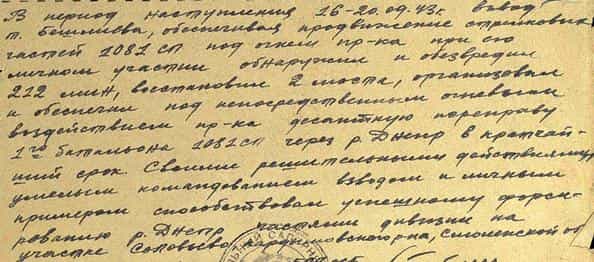 В период наступления 16-20.09.43г. взвод
т. Бешлиева, обеспечивая продвижение стрелковых
частей 1081 СП под огнем пр-ка при его
личном участии обнаружил и обезвредил
212 мин, восстановил 2 моста, организовал
и обеспечил под непосредственным огневым
воздействием пр-ка десантную переправу
1го батальона 1081 СП через р. Днепр в кратчай-
ший срок. Своими решительными действиями,
умелым командованием взводом и личным
примером способствовал успешному форси-
рованию р. Днепр частями дивизии на
участке Соловьево, Кардымовского р-на, Смоленской об